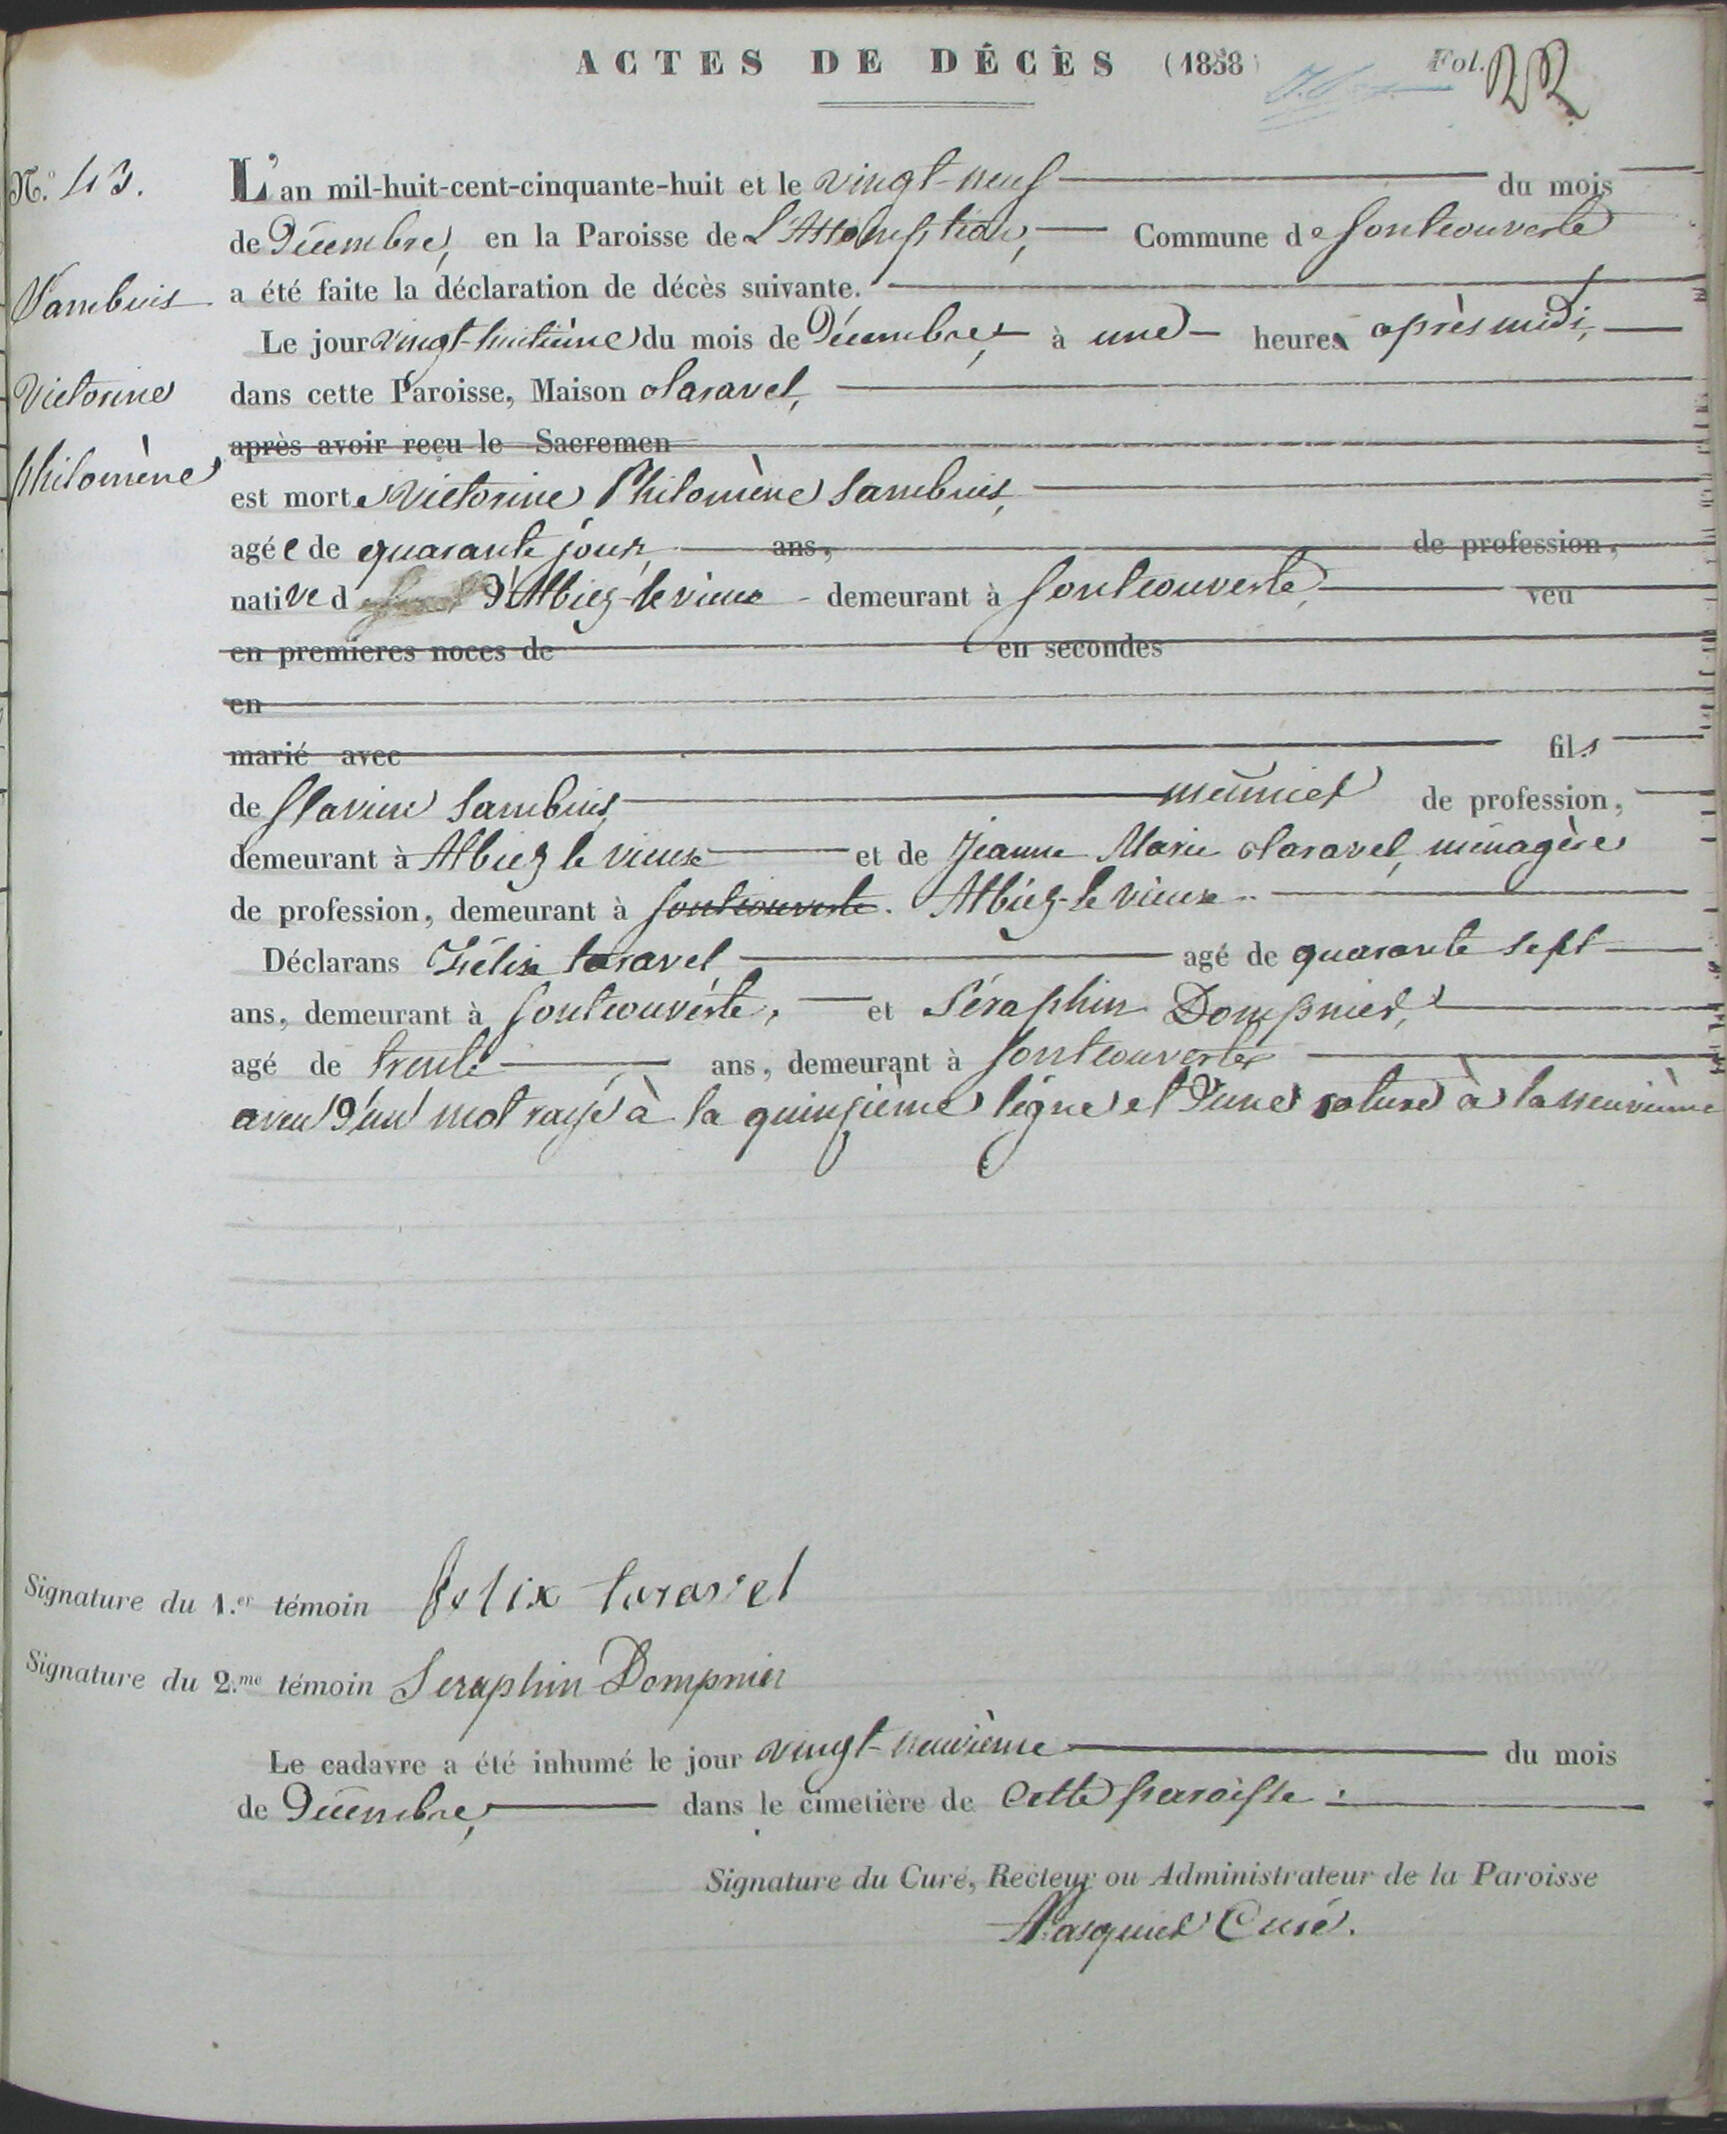 ACTES DE DÉCÈS (1858) Fol. 22
N.º 43.
L'an mil-huit-cent-cinquante-huit et le vingt-neuf du mois
de Décembre, en la Paroisse de L'Assomption, Commune de Fontcouverte
Sambuis
a été faite la déclaration de décès suivante.
Le jour vingt-huitième du mois de Décembre, à une heures après midi,
Victorine
dans cette Paroisse, Maison Taravel,
après avoir reçu le Sacremen
Philomène
est morte Victorine Philomène Sambuis,
agée de quarante jours, ans, de profession,
native d D'Albiez-le vieux demeurant à Fontcouverte, veu
en premieres noces de en secondes
en
marié avec fils
de Flavien Sambuis, meunier de profession,
demeurant à Albiez le vieux et de Jeanne Marie Taravel, ménagère
de profession, demeurant à Fontcouverte. Albiez-le vieux
Déclarans Félix taravel agé de quarante sept
ans, demeurant à Fontcouverte, et Séraphin Dompnier,
agé de trente ans, demeurant à Fontcouverte
aveu d'un mot rayé à la quinzième ligne et d'une rature à la neuvième
Signature du 1.er témoin felix taravel
Signature du 2.me témoin Seraphin Dompnier
Le cadavre a été inhumé le jour vingt-neuvième du mois
de Décembre, dans le cimetière de Cette paroisse.
Signature du Curé, Recteur ou Administrateur de la Paroisse
Curé.